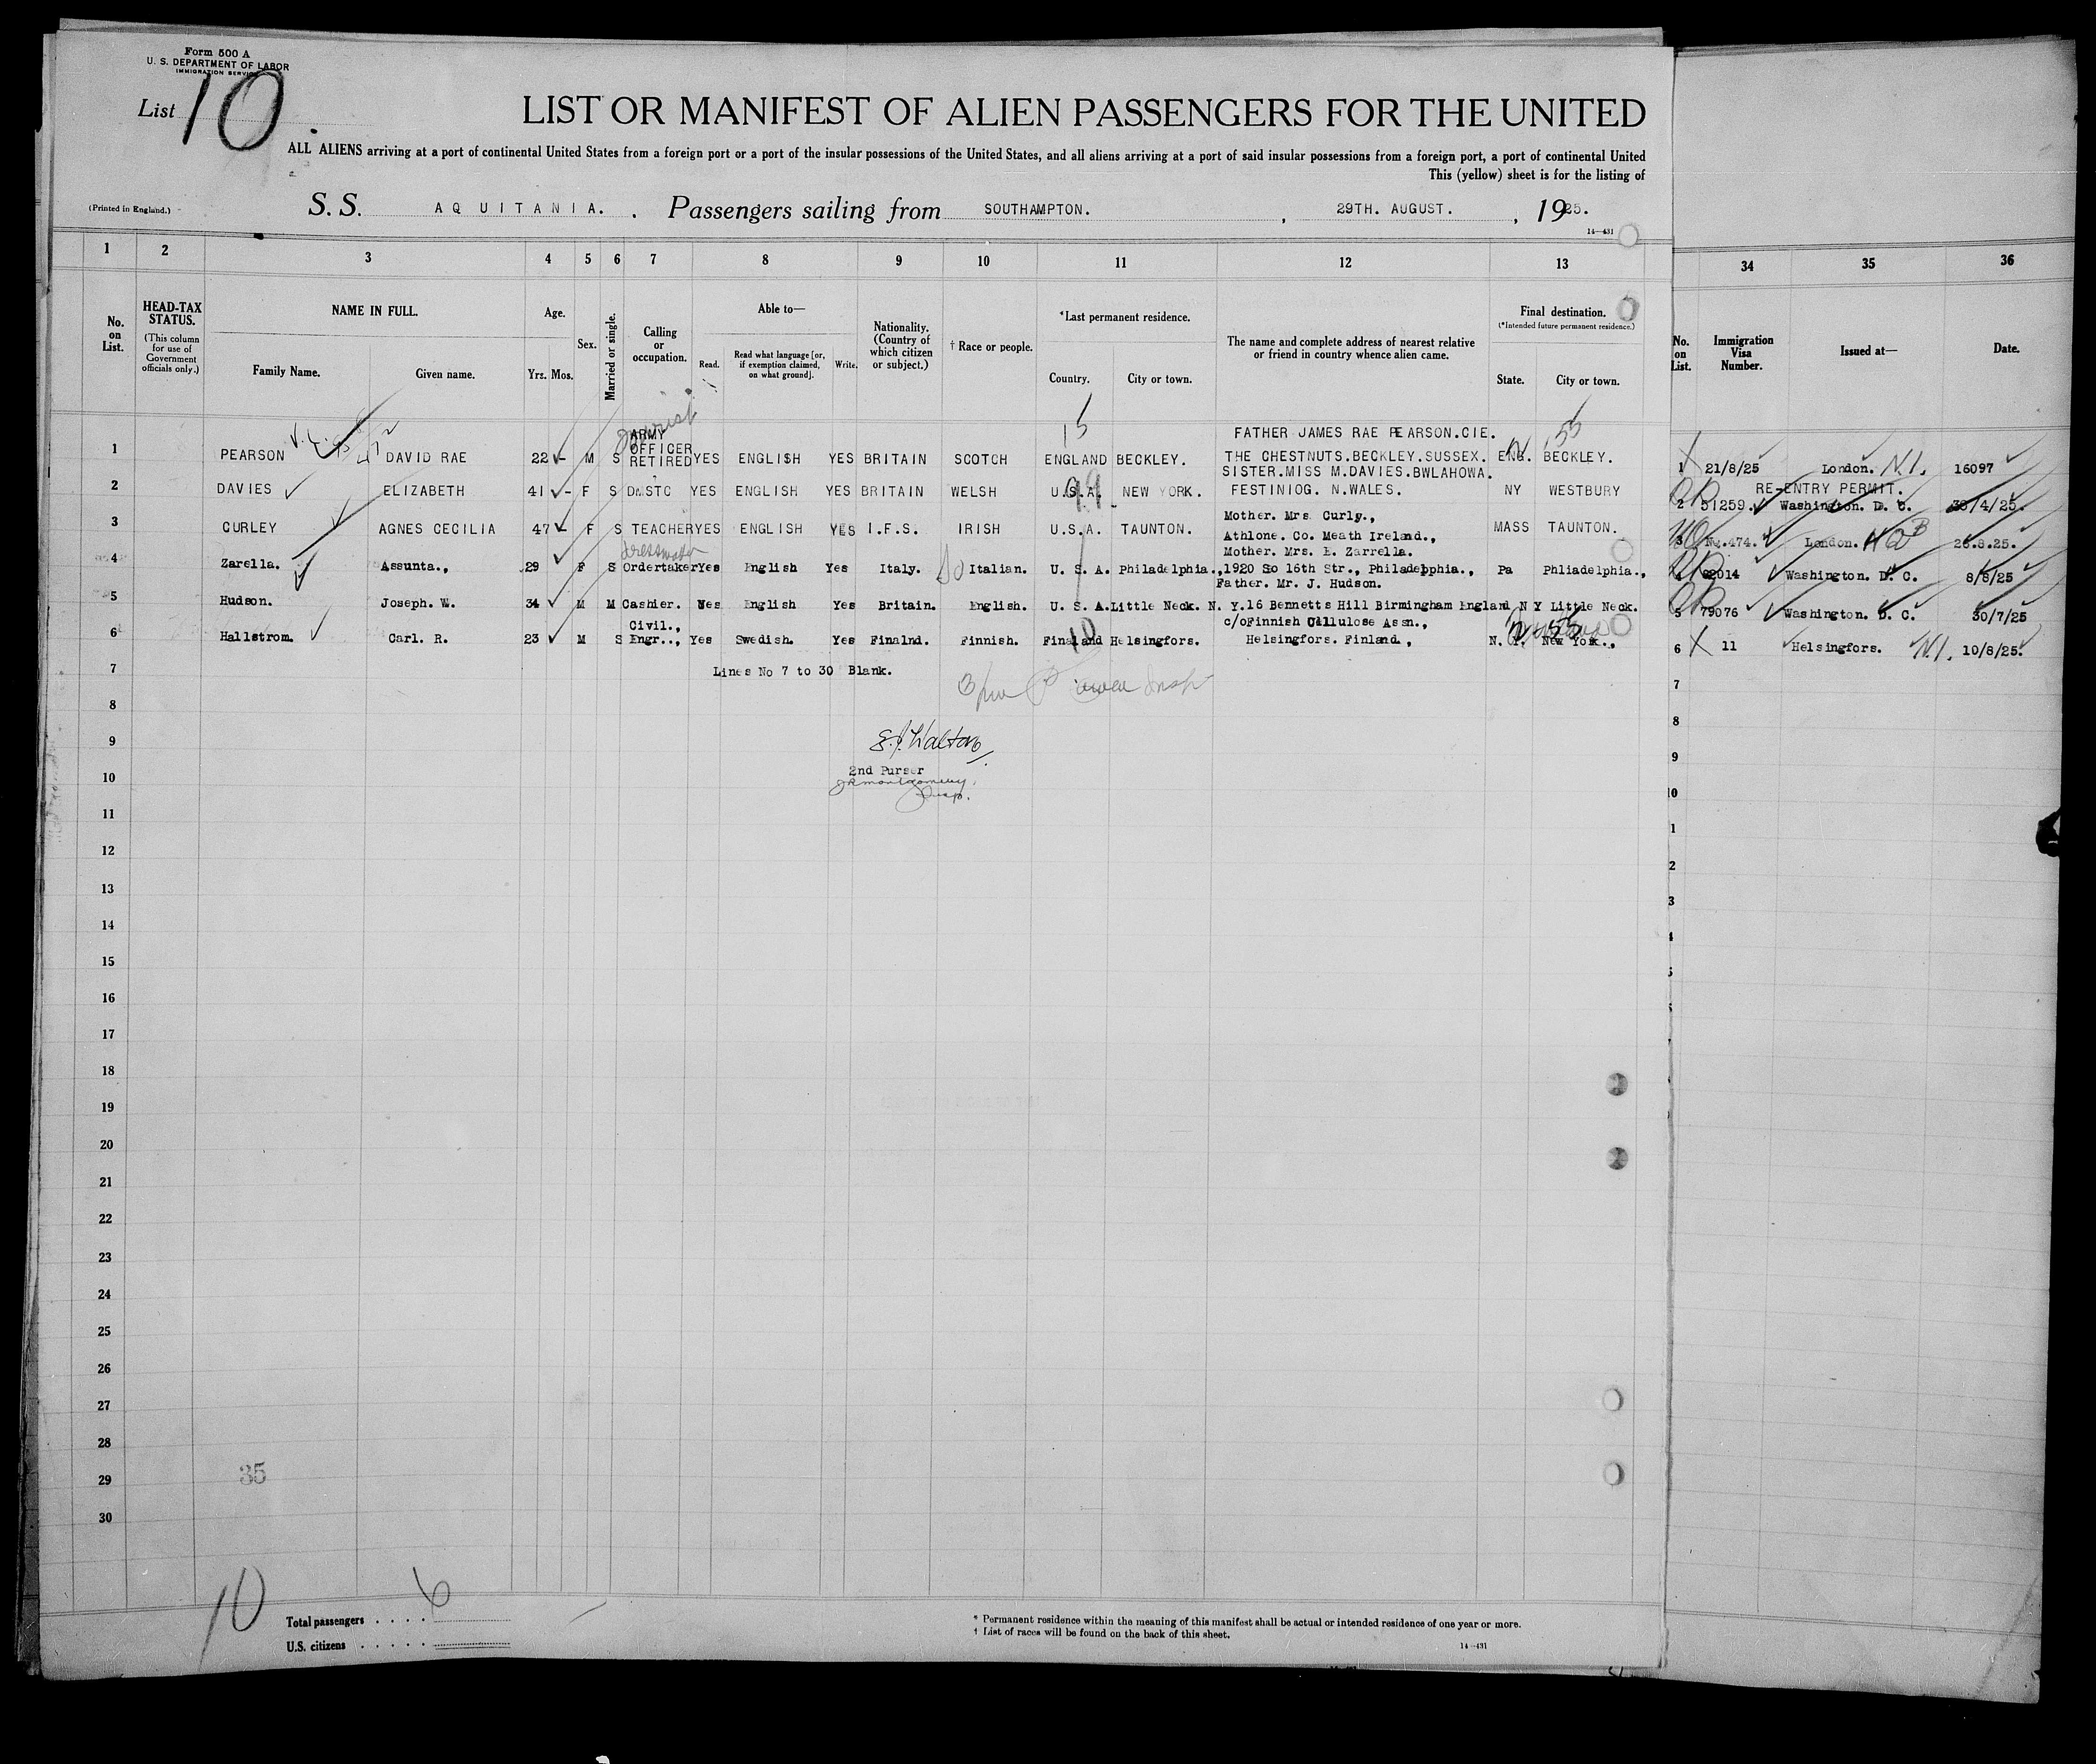 Form 500 A
U. S. DEPARTMENT OF LABOR
IMMIGRATION SERVICE
List 10
LIST OR MANIFEST OF ALIEN PASSENGERS FOR THE UNITED
ALL ALIENS arriving at a port of continental United States from a foreign port or a port of the insular possessions of the United States, and all aliens arriving at a port of said insular possessions from a foreign port, a port of continental United
This (yellow) sheet is for the listing of
(Printed in England.)
S. S. AQUITANIA. Passengers sailing from SOUTHAMPTON. , 29TH. AUGUST. , 1925.
14—431
1 2 3 4 5 6 7 8 9 10 11 12 13 34 35 36
No. on List.
HEAD-TAX STATUS.
(This column for use of Government officials only.)
NAME IN FULL.
Family Name. Given name.
Age.
Yrs. Mos.
Sex.
Married or single.
Calling or occupation.
Able to—
Read. Read what language [or, if exemption claimed, on what ground]. Write.
Nationality. (Country of which citizen or subject.)
† Race or people.
*Last permanent residence.
Country. City or town.
The name and complete address of nearest relative or friend in country whence alien came.
Final destination.
(*Intended future permanent residence.)
State. City or town.
No. on List.
Immigration Visa Number.
Issued at—
Date.
tourist
15 55
FATHER JAMES RAE PEARSON.CIE.
1 PEARSON DAVID RAE 22 - M S ARMY OFFICER RETIRED YES ENGLISH YES BRITAIN SCOTCH ENGLAND BECKLEY. THE CHESTNUTS.BECKLEY.SUSSEX. ENG. BECKLEY. 1 21/8/25 London. N.I. 16097
SISTER.MISS M.DAVIES.BWLAHOWA.
RE-ENTRY PERMIT.
2 DAVIES ELIZABETH 41 - F S DMSTC YES ENGLISH YES BRITAIN WELSH U.S.A. NEW YORK. FESTINIOG. N.WALES. NY WESTBURY 2 51259. Washington. D. C. 30/4/25.
99
Mother. Mrs Curly.,
3 CURLEY AGNES CECILIA 47 - F S TEACHER YES ENGLISH YES I.F.S. IRISH U.S.A. TAUNTON. Athlone. Co. Meath Ireland., MASS TAUNTON. 3 No.474. London. 26.8.25.
dressmaker
Mother. Mrs. E. Zarrella.
4 Zarella. Assunta., 29 F S Ordertaker Yes English Yes Italy. So Italian. U. S. A. Philadelphia., 1920 So 16th Str., Philadelphia., Pa Phliadelphia., 4 82014 Washington. D. C. 8/8/25
Father. Mr. J. Hudson.
5 Hudson. Joseph. W. 34 M M Cashier. Yes English Yes Britain. English. U. S. A. Little Neck. N. Y. 16 Bennetts Hill Birmingham England N Y Little Neck. 5 79076 Washington. D. C. 30/7/25
c/oFinnish Cellulose Assn.,
6 Hallstrom. Carl. R. 23 M S Civil., Engr.., Yes Swedish. Yes Finalnd. Finnish. Finaland Helsingfors. Helsingfors. Finland., N. Y. New York., 6 11 Helsingfors. N.I. 10/8/25.
10 55
7 Lines No 7 to 30 Blank. 7
8 8
9 9
2nd Purser
JRMontgomery
Insp.
10 10
11
12
13
14
15
16
17
18
19
20
21
22
23
24
25
26
27
28
29
35
30
10
Total passengers . . . . 6
U.S. citizens . . . . .
* Permanent residence within the meaning of this manifest shall be actual or intended residence of one year or more.
† List of races will be found on the back of this sheet.
14—431